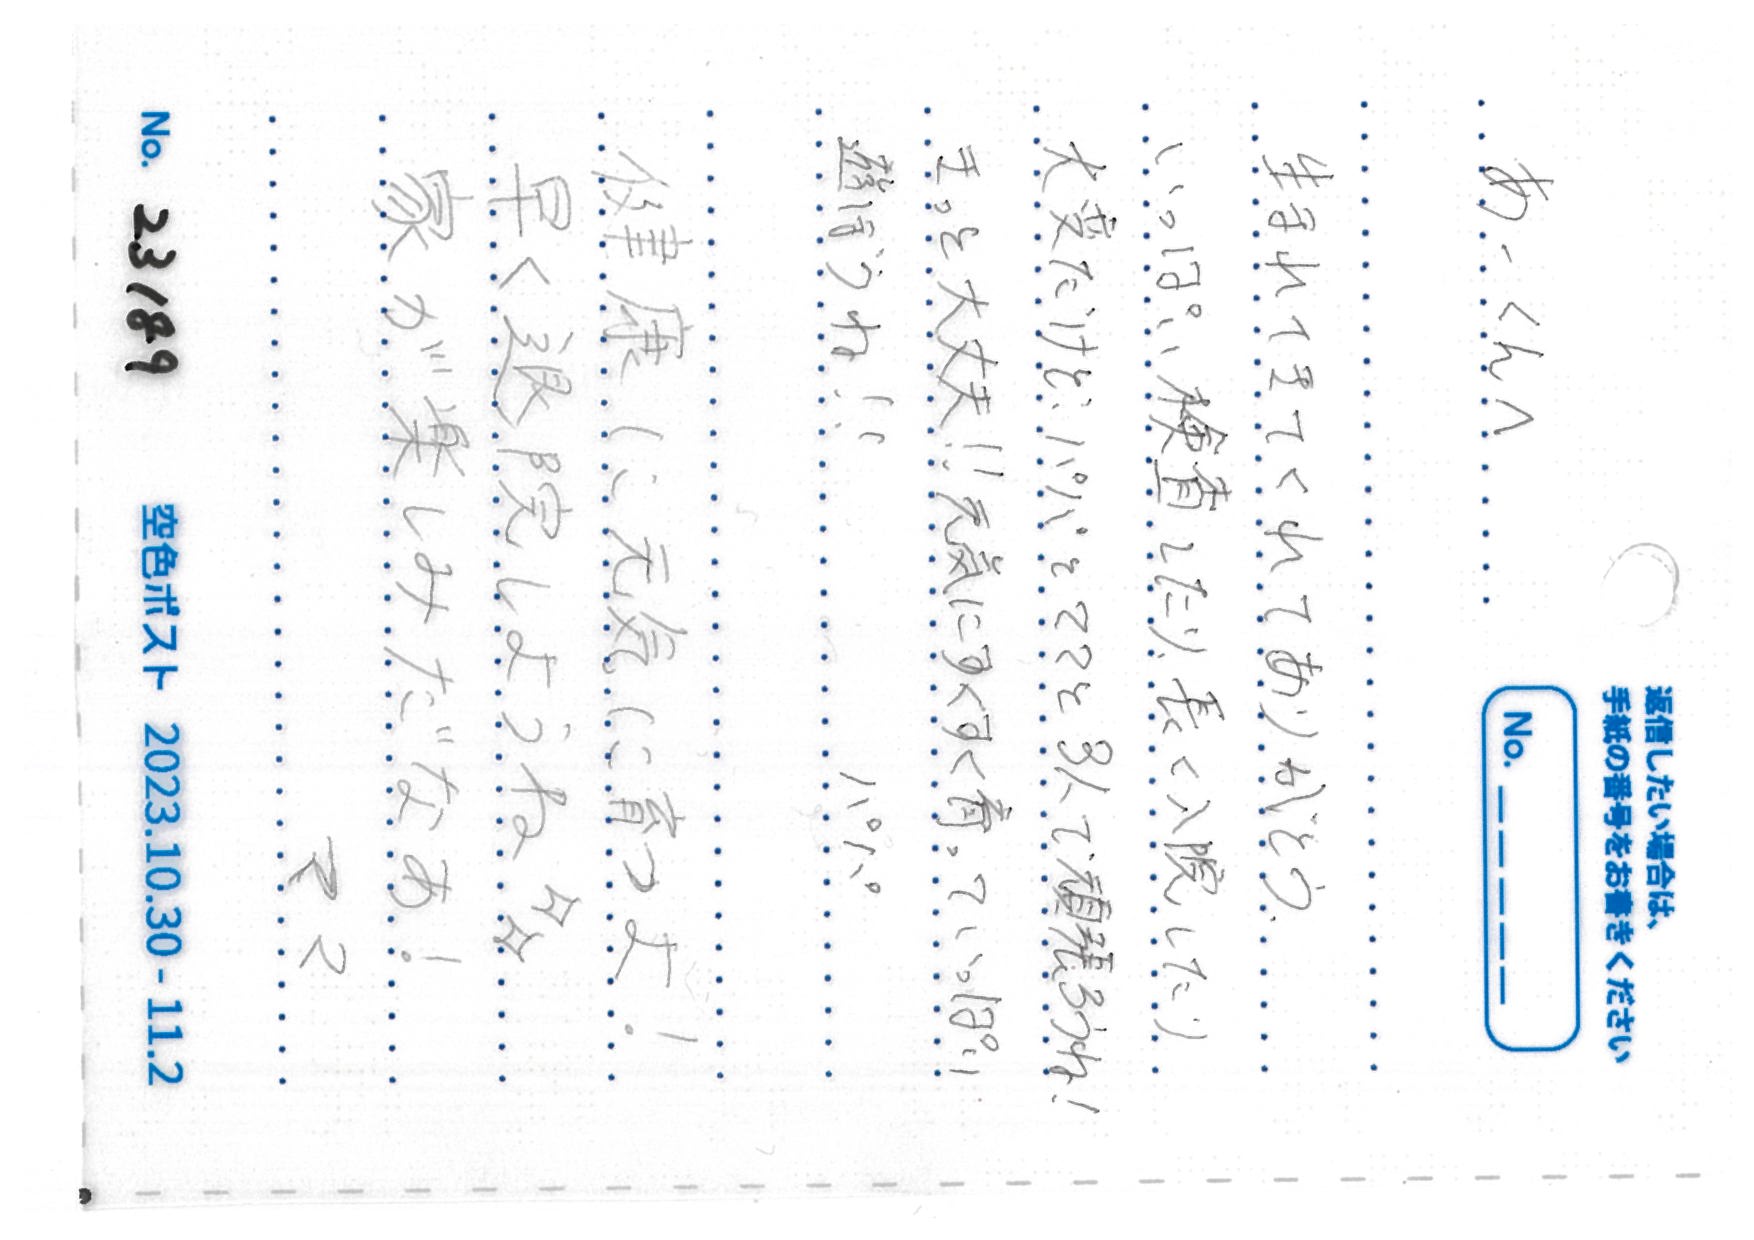 返信したい場合は、
手紙の番号をお書きください
No. _ _ _ _ _
あーくんへ
生まれてきてくれてありがとう.
いっぱい検査したり、長く入院したり
大変だけど、パパとママと3人で頑張ろうね!
きっと大丈夫!!元気にすくすく育っていっぱい
遊ぼうね!!
パパ
健康に元気に育つよ!
早く退院しようね
家が楽しみだなあ!
ママ
No. 23189
空色ポスト 2023.10.30 - 11.2